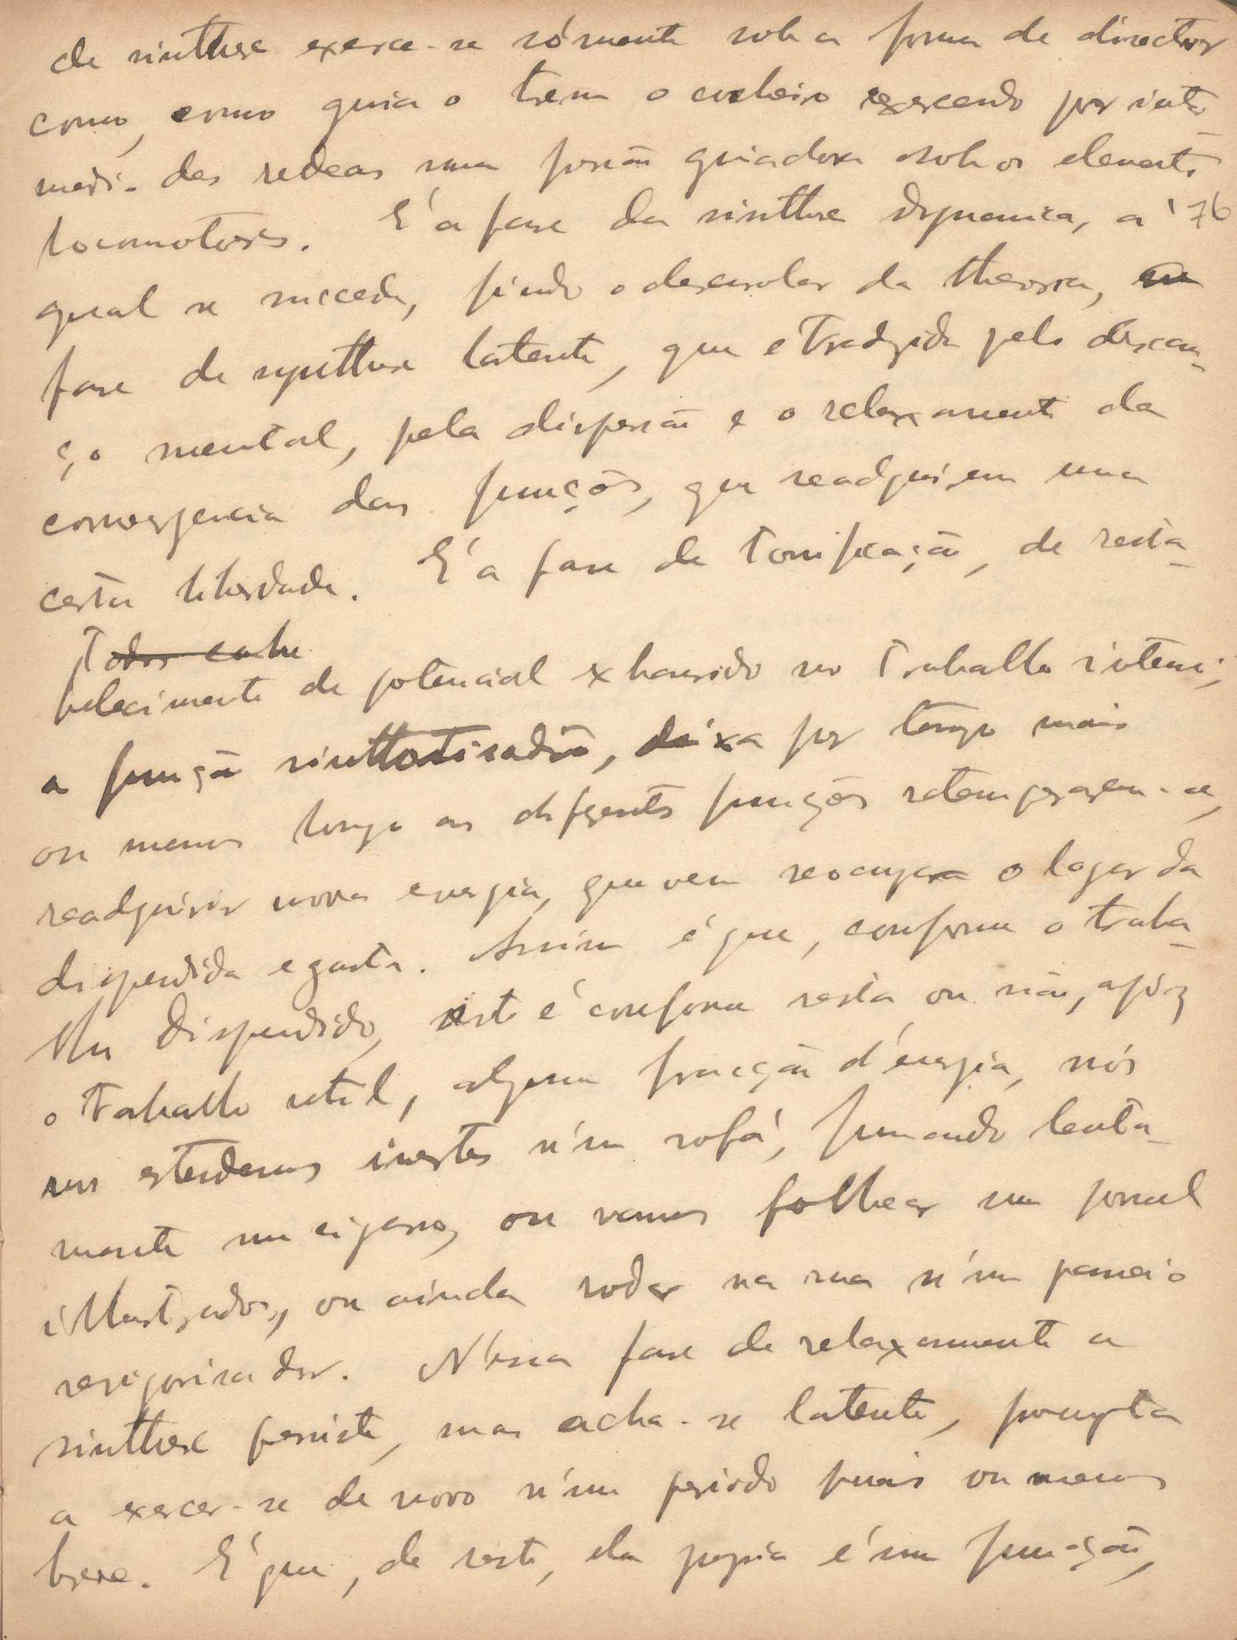 de sinthese exerce-se sómente sob a forma de director
como, como guia o trem o cocheiro exercendo por inter
medi. das redeas uma funcão guiadora sob os elementos
locomotores. E' a fase da sinthese dynamica, a '76
qual se succede, findo o desenrolar da theoria, a
fase de synthese latente, que e traduzida pelo descan-
ço mental, pela dispersão e o relaxamento da
convergencia das funções, que readquirem uma
certa liberdade. E' a fase de tonificação, de resta-
Todos
belecimento de potencial exhaurido no trabalho intenso;
a função sinthetisadora, deixa por tempo mais
ou menos longo as diferentes funções retemperarem-se,
readquirir nova energia, que vem reocupar o logar da
dispendida e gasta. Assim é que, conforme o traba-
lho dispendido, isto é conforme resta ou não, após
o trabalho util, alguma fracção d'energia, nós
nos estendemos inertes n'um sofá, fumando lenta-
mente um cigarro, ou vamos folhear um jornal
illustrado, ou ainda rodar na rua n'um passeio
revigorisador. Nessa fase de relaxamento a
sinthese persiste, mas acha-se latente, prompta
a exercer-se de novo n'um periodo mais ou menos
breve. E' que, de resto, ella propria é uma função,